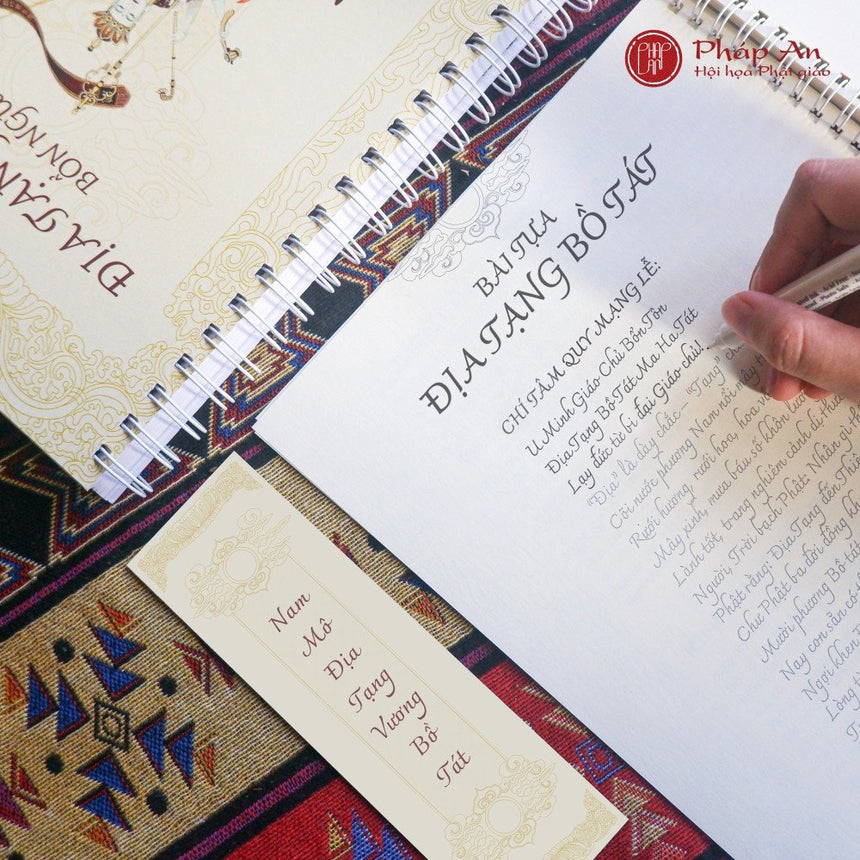 PHÁP AN
Pháp An
Hội họa Phật giáo
ĐỊA TẠN
BỔN NGU
BÀI TỰA
ĐỊA TẠNG BỒ TÁT
CHÍ TÂM QUY MẠNG LỄ:
U Minh Giáo Chủ Bổn Tôn
Địa Tạng Bồ Tát Ma Ha Tát
Lạy đức từ bi đại Giáo chủ!
"Địa" là dày chắc - "Tạng" ch
Cõi nước phương Nam nổi mây th
Rưới hương, rưới hoa, hoa v
Mây xinh, mưa báu số khôn lườ
Lành tốt, trang nghiêm cảnh dị thườ
Người, Trời bạch Phật: Nhân gì th
Phật rằng: Địa Tạng đến Thi
Chư Phật ba đời đồng kh
Mười phương Bồ-tá
Nay con sẵn có
Ngợi khen
Lòng t
Nam
Mô
Địa
Tạng
Vương
Bồ
Tát